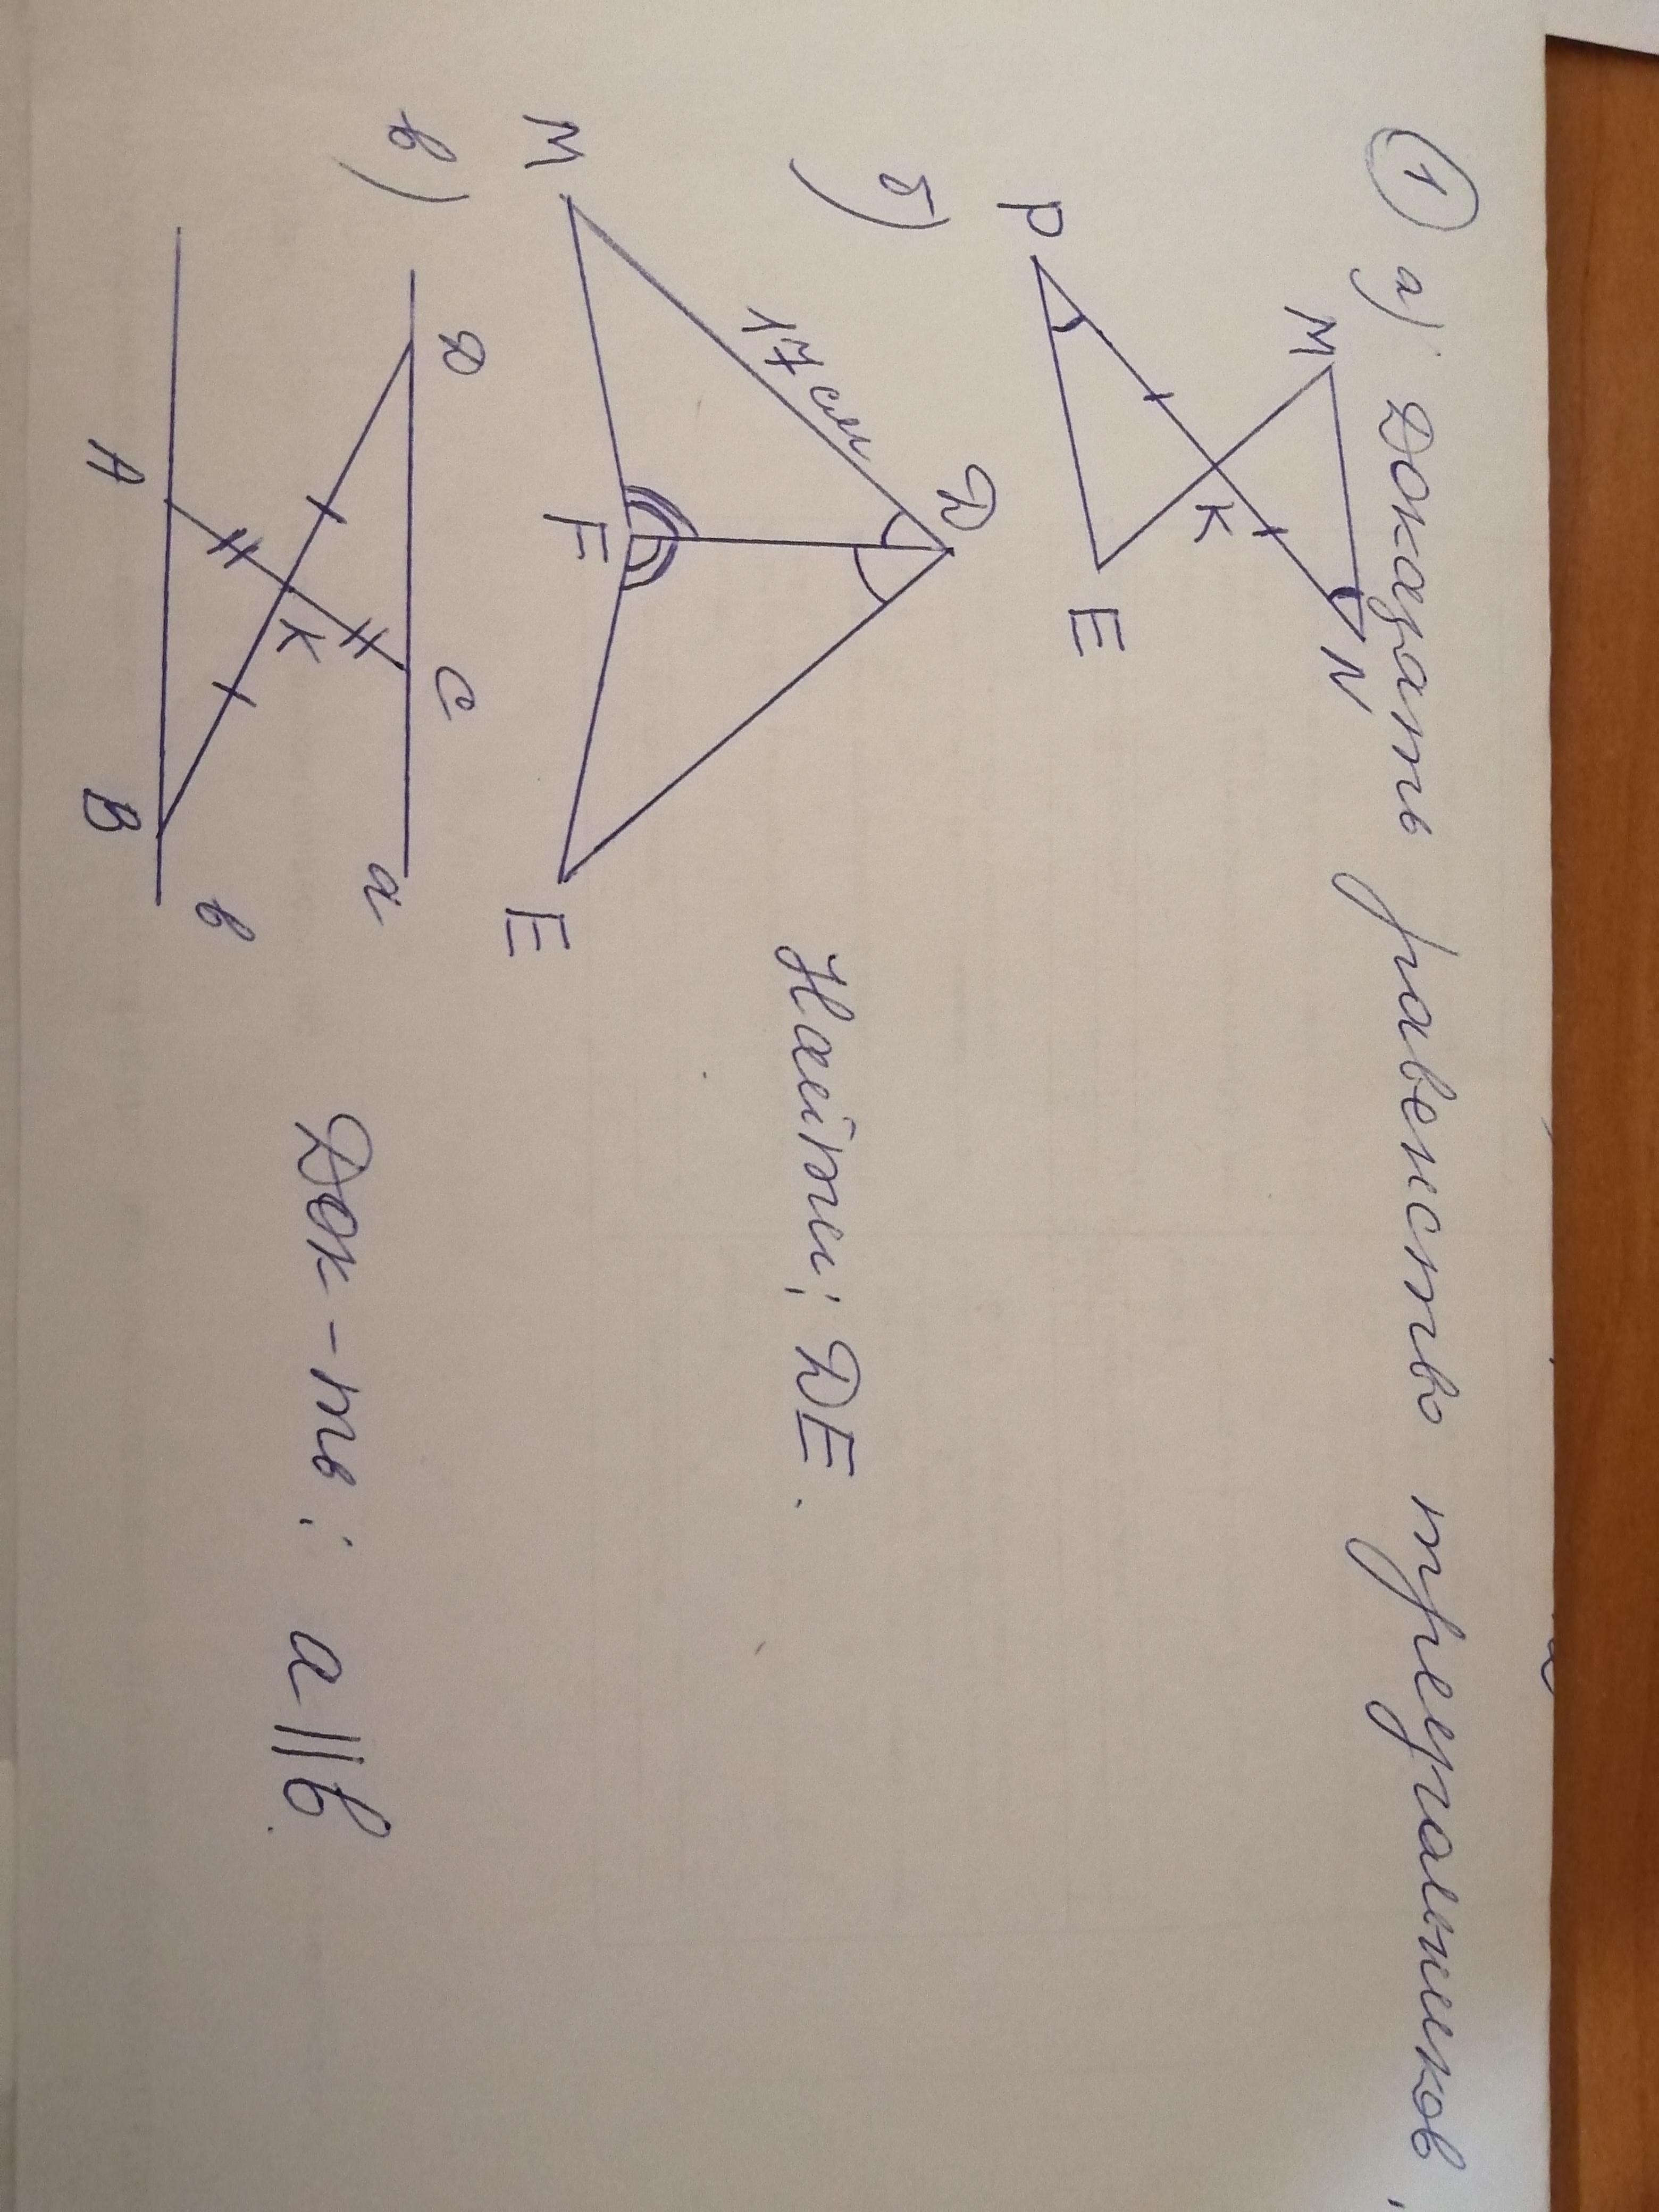 ① а) Доказать равенство треугольников.
M
N
K
P
E
б)
D
17 см
Найти: DE.
F
M
E
в)
D
C
a
K
Док-ть: a||b.
A
B
b